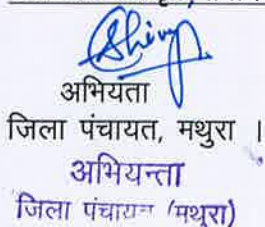 अभियता
जिला पंचायत, मथुरा ।
अभियन्ता
जिला पंचायत (मथुरा)